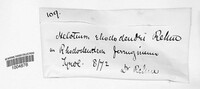 109.
Helotium rhododendri Rehm
in Rhododendron ferrugineum
Tyrol. 8/72
Dr Rehm